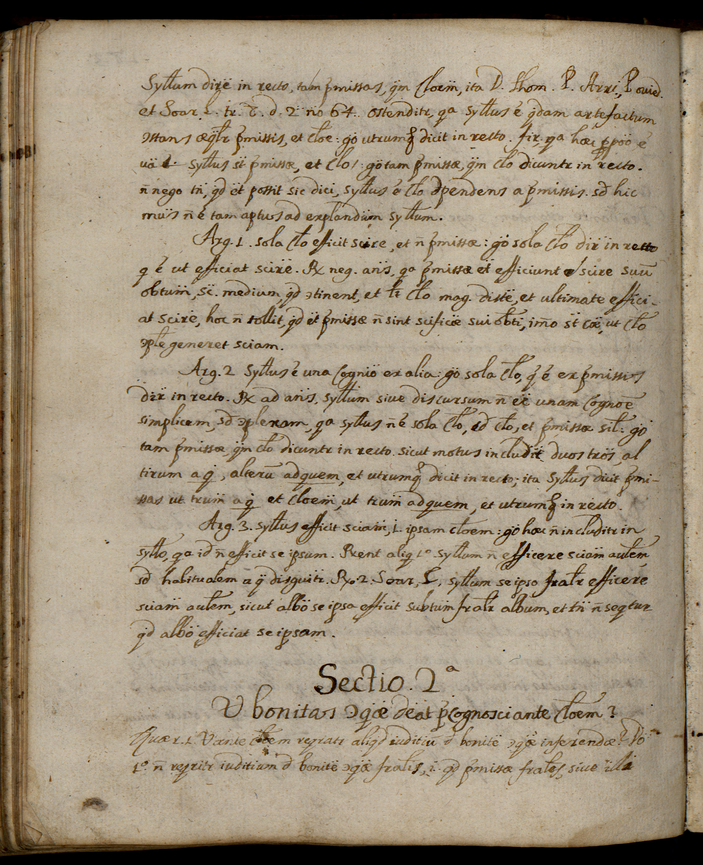 Syllum dire in recto, tam pmissas, qm Cloem, ita D. Thom. P. Arri, P. ovied.
et Soar. L. tr. d. 2 no 64. ostenditr, qa Syllus ē qdam artefactum
ɔstans æqlr pmissis, et cloe: go utrumq dicit in recto.
Syllus st pmissæ, et Clo: go tam pmissæ, qm clo dicuntr in recto.
ñ nego tñ, qd et possit sic dici, Syllus ē clo dpendens a pmissis. sd hic
muis ñ ē tam aptus ad explandum Syllum.
Arg. 1. sola clo efficit scire, et ñ pmissæ: go sola clo dir in recto
q ē ut efficiat scire. Rx neg. ans, qa pmissæ et efficiunt scire suū
obtum, sc. medium qd ɔtinent, et lt clo mag. diste, et ultimate effici-
at scire, hoc ñ tollit, qd et pmissæ ñ sint scificæ sui obti, imo st cæ, ut clo
ɔple generet sciam.
Arg. 2 Syllus ē una Cognio ex alia: go sola clo, q ē ex pmissis
dir in recto. Rx ad ans, Syllum sive discursum ñ ee unam Cognoē
simplicem, sd ɔplexam, qa syllus ñ ē sola clo, sd clo, et pmissæ sil: go
tam pmissæ, qm clo dicuntr in recto. sicut motus includit duos tros, al
tirum a q, alterū ad quem, et utrumq dicit in recto; ita Syllus dicit pmi-
ssas ut trum a q et Cloem, ut trum ad quem, et utrumq in recto.
Arg. 3. Syllus efficit sciam, i. ipsam cloem: go hæc ñ includitr in
syllo, qa id ñ efficit se ipsum. Rxent aliq 1o Syllum ñ efficere sciem aulem
sd habitualem a q disguitr. Rxo 2. Soar, L, syllum se ipso fralr efficere
sciam aulem, sicut albō se ipsa efficit subtum fralr album, et tñ ñ seqtur
qd albō efficiat se ipsam.
Sectio. 2a
V bonitas ɔqæ deat pcognosci ante Cloem?
Quær. 1. V ante cloem reqratr aliqd iuditiū d bonite ɔqæ inferendæ?
1o ñ reqritr iuditium d bonite ɔqæ fralis, i. qd pmissæ sive illa